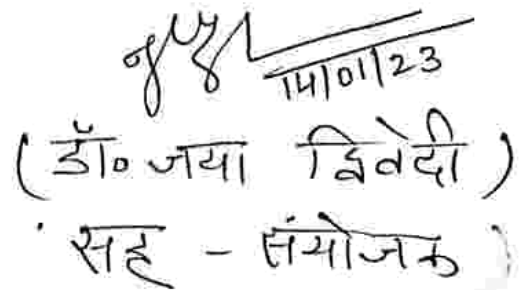 14/01/23
(डॉ० जया द्विवेदी)
सह - संयोजक